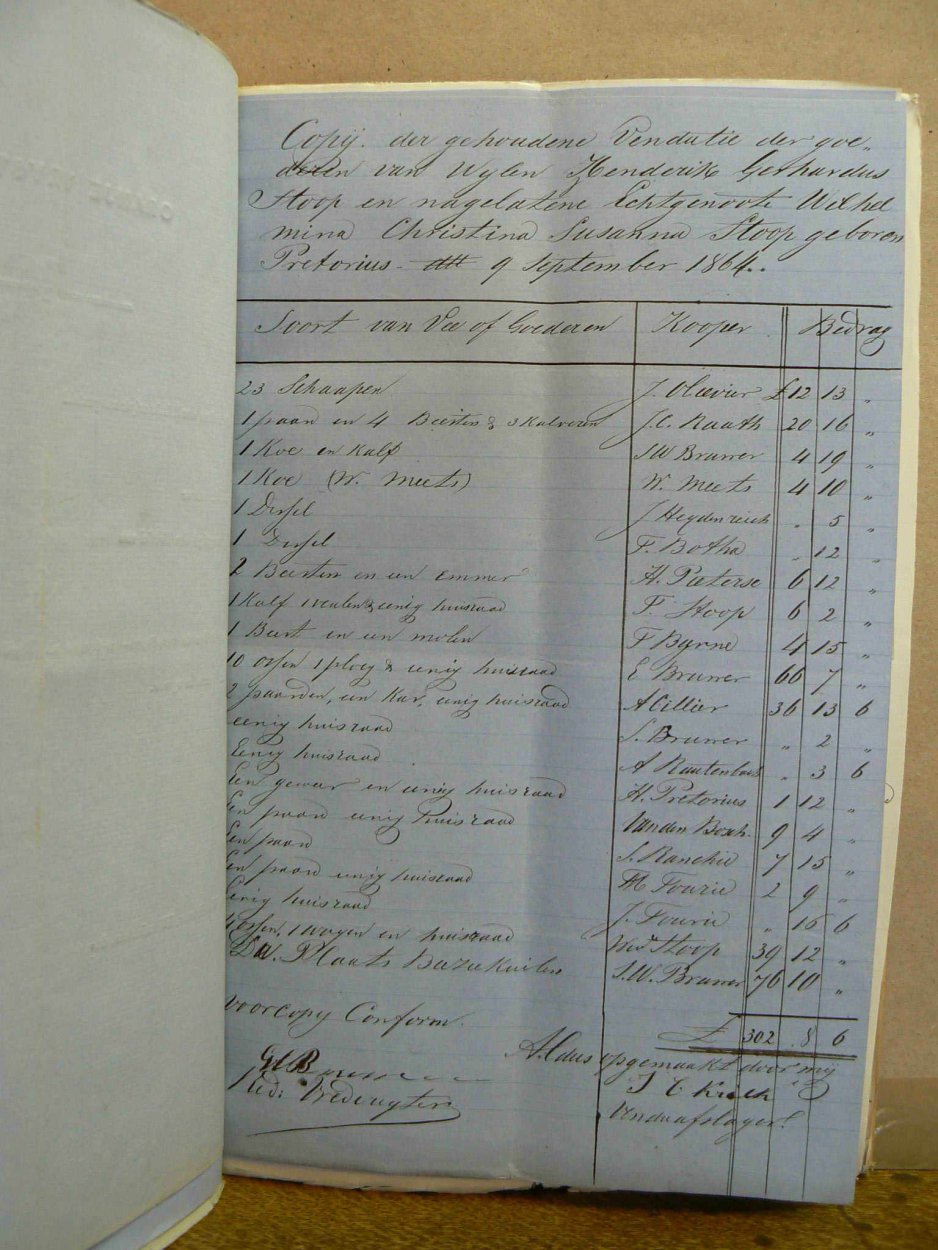 Copij. der gehoudene Vendutie der goe„
deren van Wylen Henderik Gerhardus
Stoop en nagelatene Echtgenoote Wilhel
mina Christina Susanna Stoop geboren
Pretorius 9 September 1864..
Soort van Vee of Goederen Kooper Bedrag
23 Schaapen J. Olievier £12 13 „
1 paard en 4 Beesten & 3 Kalveren J.C. Raath 20 16 „
1 Koe en Kalf SW Bruwer 4 19 „
1 Koe (W. Meets) W. Meets 4 10 „
1 Dissel J Heydenreich „ 5 „
1 Dissel F. Botha „ 12 „
2 Beesten en een emmer H. Pieterse 6 12 „
1 Kalf 1 veulen & eenig huisraad F. Stoop 6 2 „
1 Beest en een molen F Byrne 4 15 „
10 ossen 1 ploeg & eenig huisraad E Bruwer 66 7 „
2 paarden, een Kar, eenig huisraad A Cillier 36 13 6
eenig huisraad S. Bruwer „ 2 „
Eenig huisraad A Rautenbach „ 3 6
Een geweer en eenig huisraad H. Pretorius 1 12 „
Een paard eenig huisraad Van den Bosch 9 4 „
Een paard S. Ranchie 7 15 „
Een paard eenig huisraad H Fourie 2 9 „
Eenig huisraad J. Fourie „ 16 6
ossen, 1 wagen en huisraad Wed Stoop 39 12 „
De. Plaats S.W. Bruwer 76 10 „
£ 302 . 8 6
Voor copy Conform.
Aldus opgemaakt door my
Vendu afslager